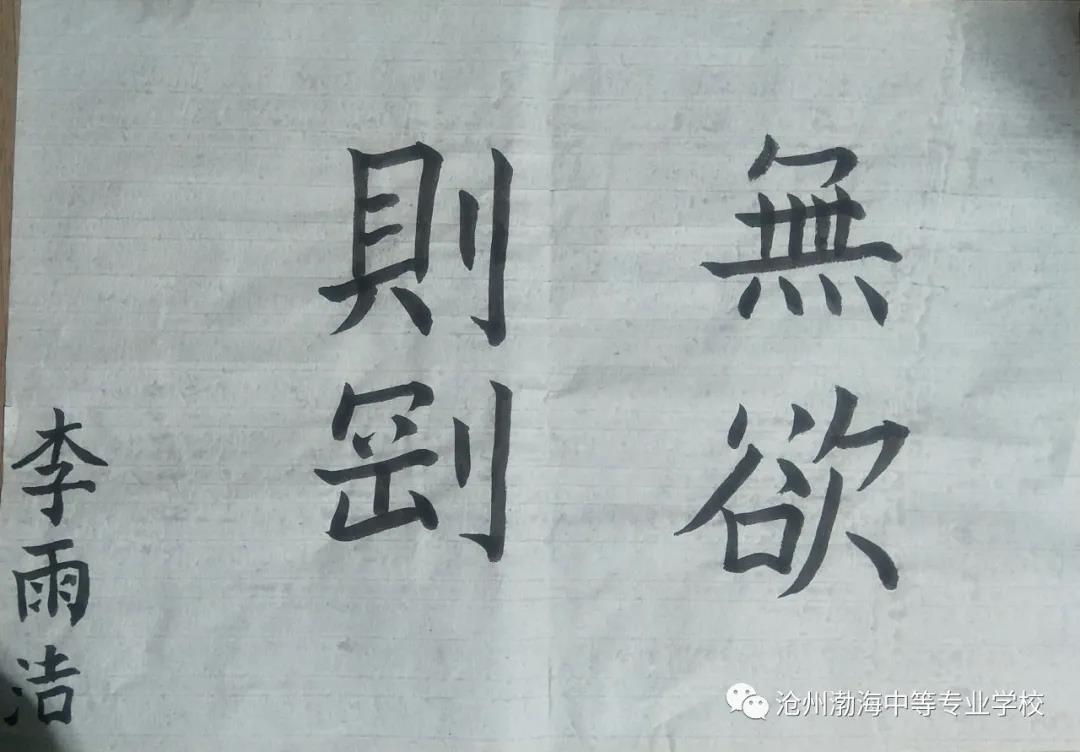 無欲
則剛
李雨洁
沧州渤海中等专业学校